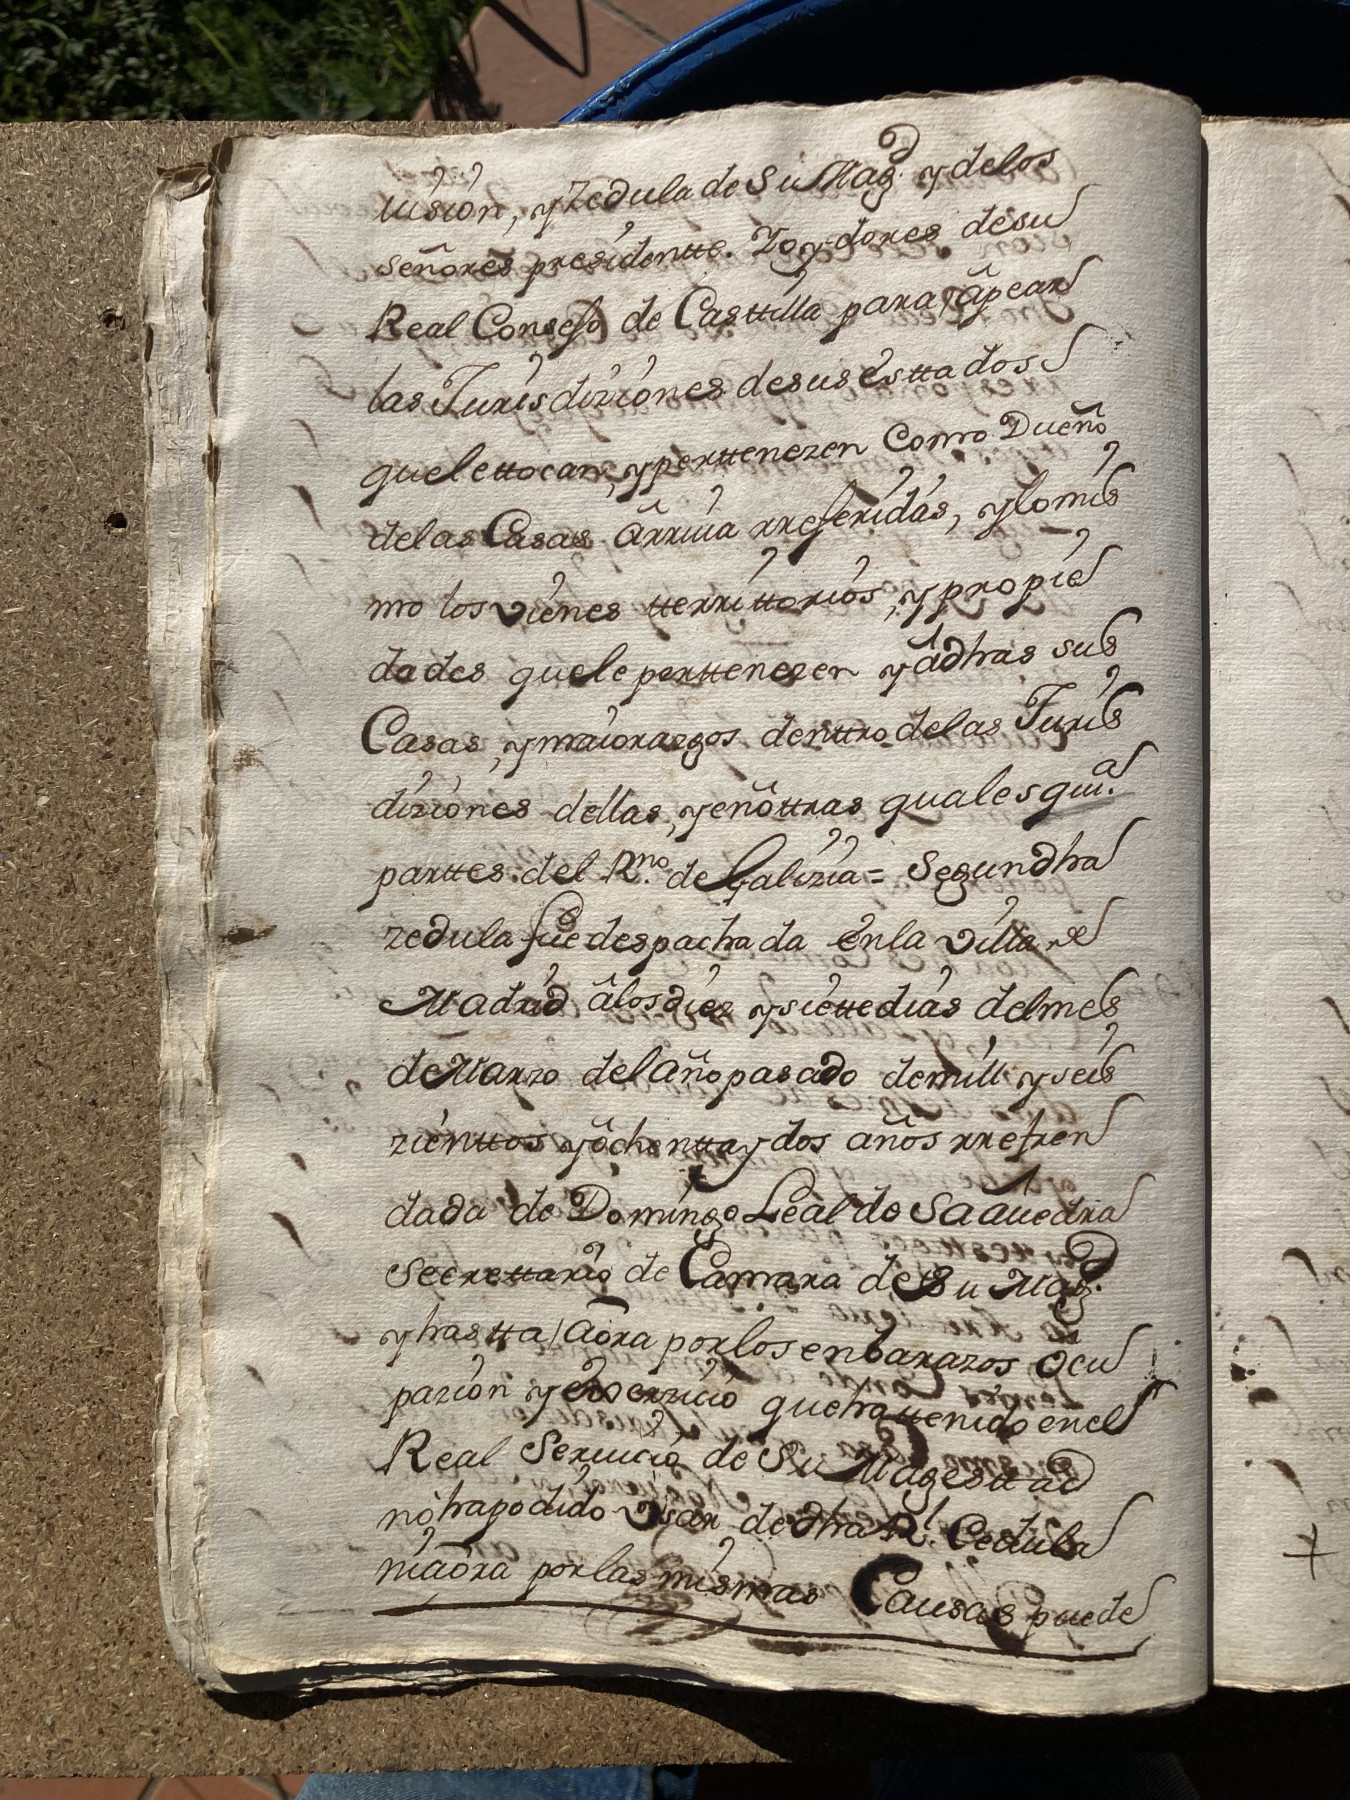 uision, y Zedula de Su Magd. y delos
señores presidentte. Y oydores desu
Real Consejo de Casttilla para âpear
las Jurisdiziones desus esttados
quelettocan, y perttenezen Como Dueño
delas Casas ârriua rreferidas, ylomis
mo los vienes tterrittorios, y propie
dades quele perttenezen y âdhas sus
Casas, y maiorazgos denttro delas Juris
diziones dellas, y enôttras qualesquia.
parttes. del Rno. de Galizia = Segun dha
zedula fue despachada enla villa de
Madrid âlos diez ysiette dias delmes
de Marzo del año pasado demill y seis
zienttos yôchenttay dos años rrefren
dada de Domingo Leal de Saauedra
Secrettario de Camara de Su Magd.
y hastta / aôra porlos enbarazos Ocu
pazion y exerzicio quehattenido enel
Real Seruicio de Su Magesttad
no hapodido vsar de dha Rl. Cedula
niaôra porlas mismas Causas puede